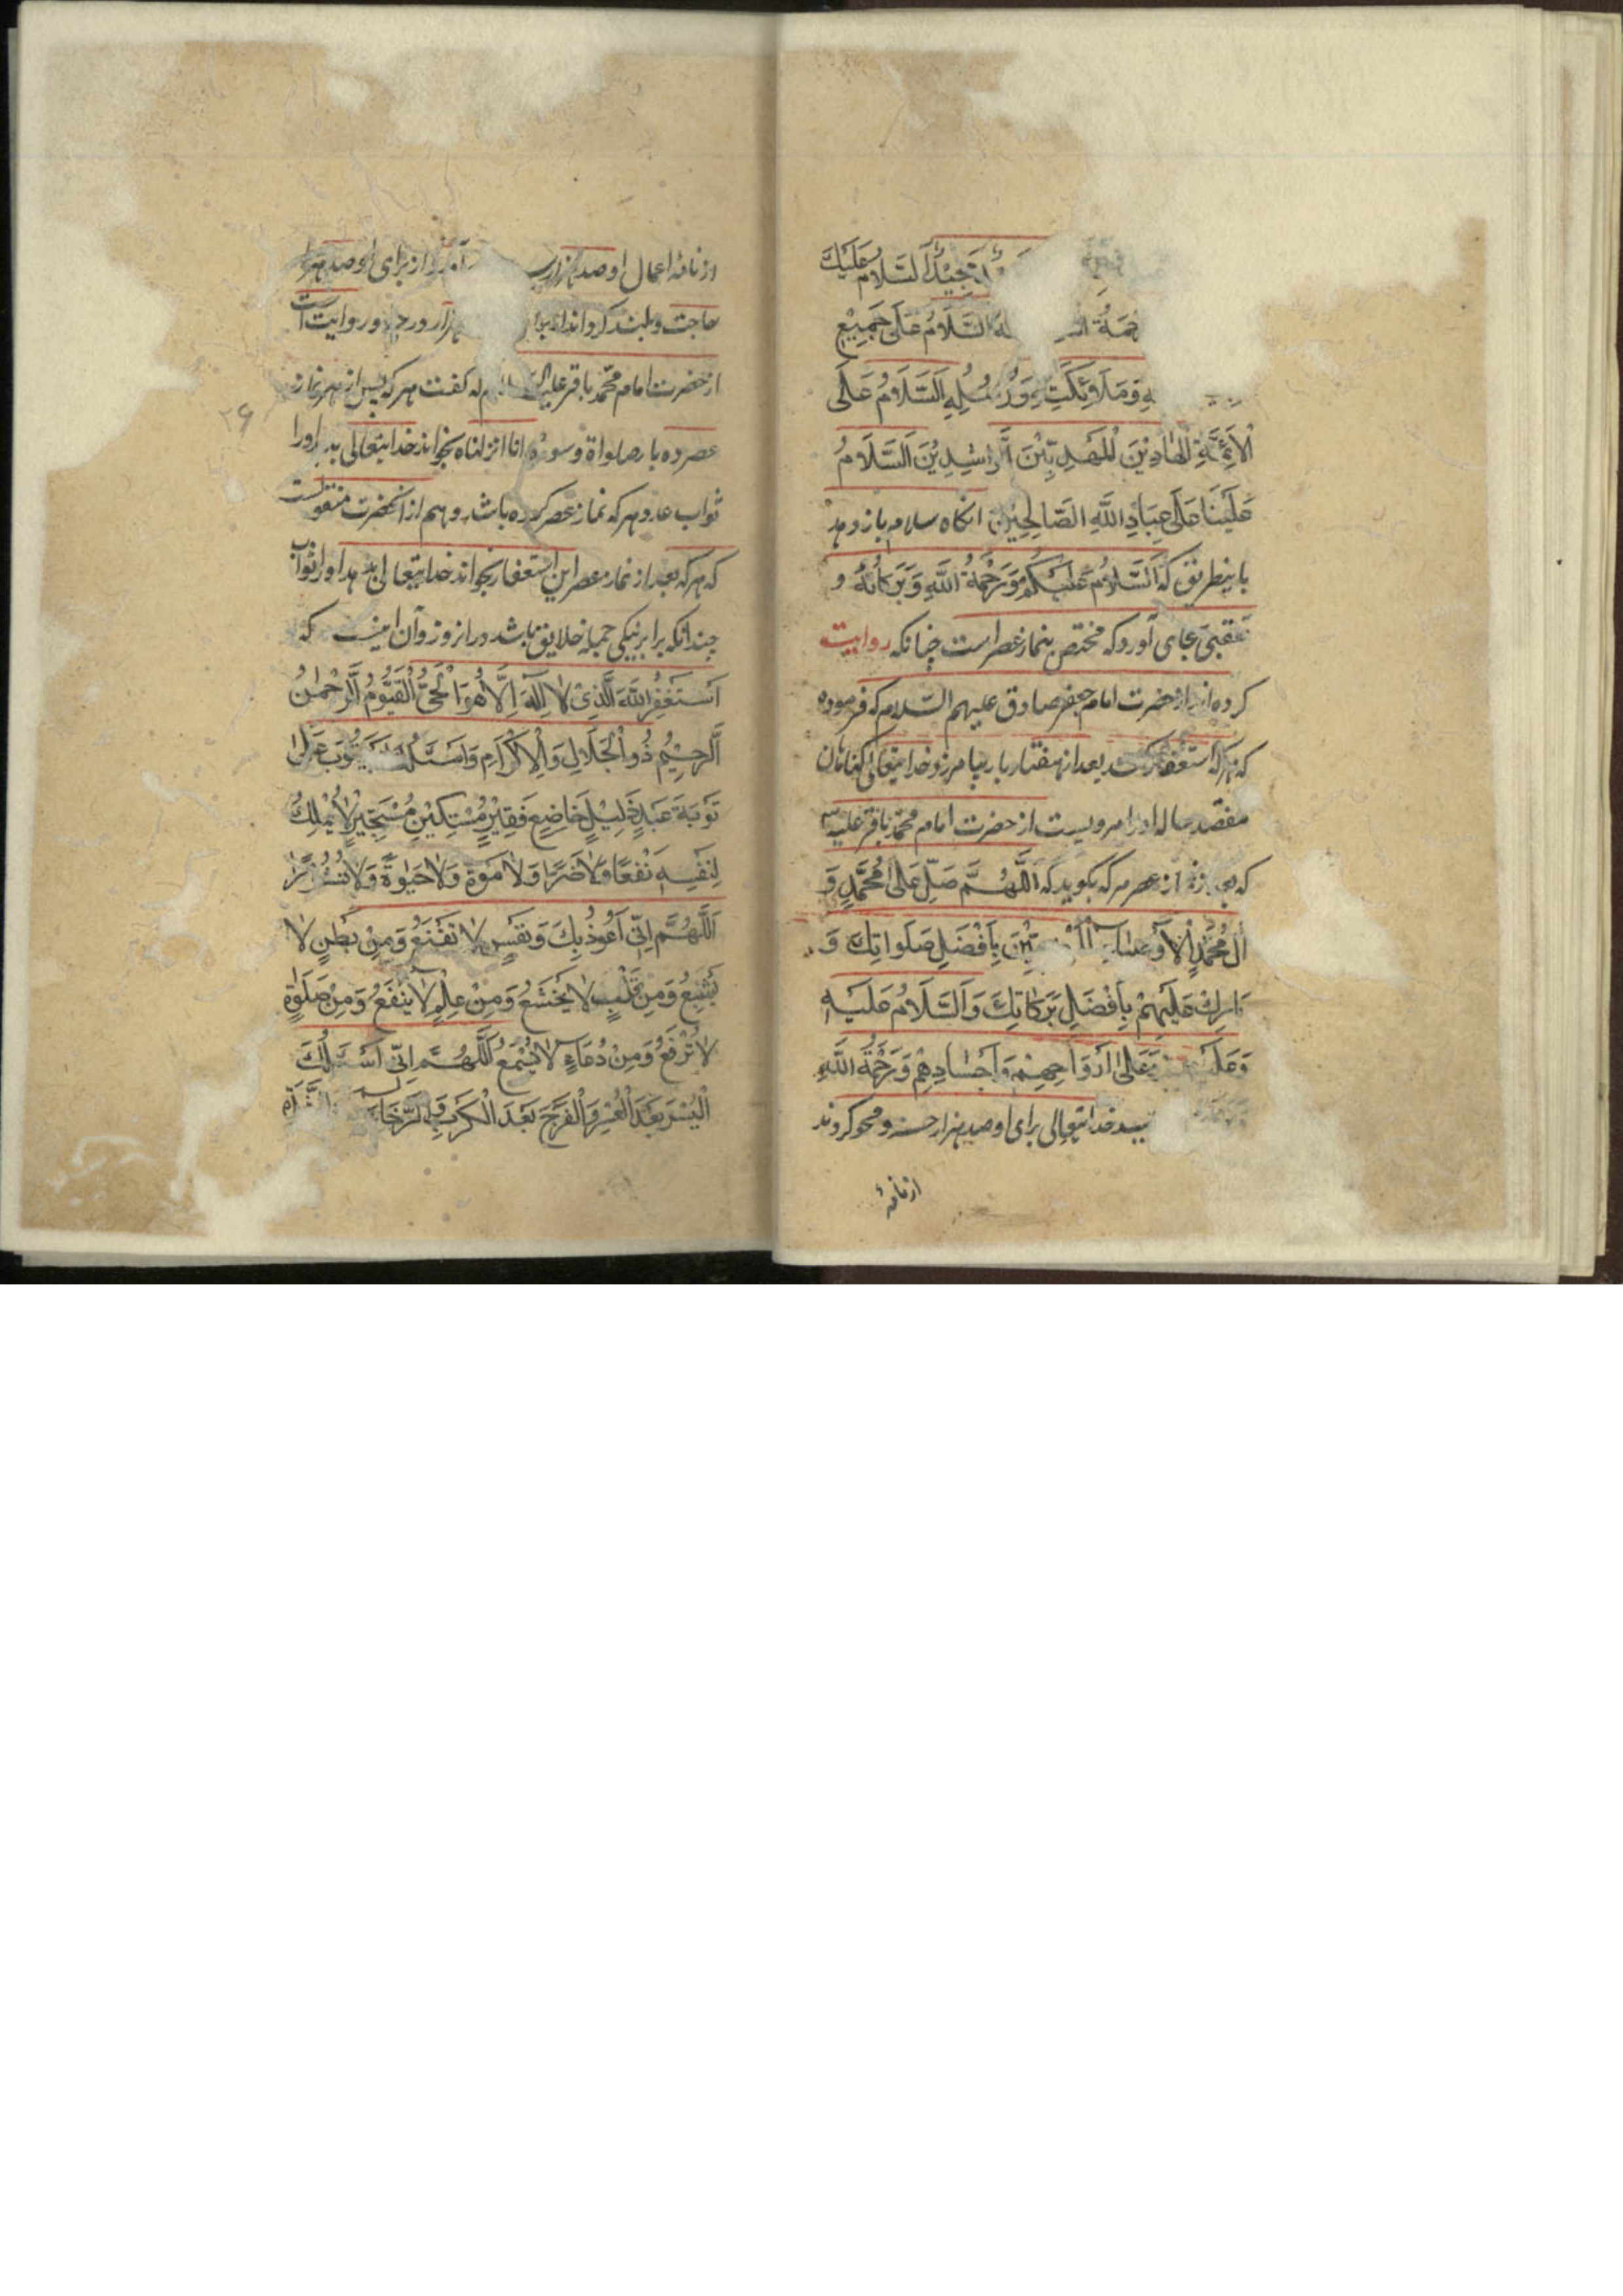 مَجِيْدٌ اَلسَّلَامُ عَلَيْكَ
اَلسَّلَامُ عَلَى جَمِيْعِ
وَمَلَائِكَتِهِ وَرُسُلِهِ اَلسَّلَامُ عَلَى
الْاَئِمَّةِ الْهَادِيْنَ الْمَهْدِيِّيْنَ الرَّاشِدِيْنَ اَلسَّلَامُ
عَلَيْنَا عَلَى عِبَادِ اللّٰهِ الصَّالِحِيْنَ انکاه سلام باز دهد
باینطریق که اَلسَّلَامُ عَلَيْكُمْ وَرَحْمَةُ اللّٰهِ وَبَرَكَاتُهُ و
تعقیبی بجای آورد که مختص بنماز عصر است چنانکه روایت
کرده اند از حضرت امام جعفر صادق علیهم السّلام که فرموده
که هرکه استغفار کند بعد از هفتاد بار بیامرزد خدایتعالی کناهان
هفتصد ساله او را مرویست از حضرت امام محمّد باقر علیه
که بعد از نماز عصر هرکه بکوید که اَللّٰهُمَّ صَلِّ عَلٰى مُحَمَّدٍ وَ
اٰلِ مُحَمَّدٍ الْاَوْصِيَاءِ بِاَفْضَلِ صَلَوَاتِكَ وَ
بَارِكْ عَلَيْهِمْ بِاَفْضَلِ بَرَكَاتِكَ وَالسَّلَامُ عَلَيْهِ
وَعَلَيْهِمْ وَعَلٰى اَرْوَاحِهِمْ وَاَجْسَادِهِمْ وَرَحْمَةُ اللّٰهِ
خدایتعالی برای او صد هزار حسنه و محو کرداند
از نامهٔ
از نامهٔ اعمال او صد هزار از برای او صد هزار
حاجت و بلند کرداند برای هزار درجه و روایت است
از حضرت امام محمّد باقر علیه السلام که کفت هرکه پس از هر نماز
۲۶
عصر ده بار صلواة و سورهٔ انا انزلناه بخواند خدایتعالی بدهد او را
ثواب عدد هرکه نماز عصر کرده باشد و هم از آنحضرت منقولست
که هرکه بعد از نماز عصر این استغفار بخواند خدایتعالی بدهد او را ثواب
چندانکه برابر نیکی جمله خلایق باشد در آنروز و آن اینست که
اَسْتَغْفِرُ اللّٰهَ الَّذِيْ لَا اِلٰهَ اِلَّا هُوَ الْحَيُّ الْقَيُّوْمُ الرَّحْمٰنُ
الرَّحِيْمُ ذُو الْجَلَالِ وَالْاِكْرَامِ وَاَسْئَلُهُ يَتُوْبَ عَلَىَّ
تَوْبَةَ عَبْدٍ ذَلِيْلٍ خَاضِعٍ فَقِيْرٍ مُسْتَكِيْنٍ مُسْتَجِيْرٍ لَا يَمْلِكُ
لِنَفْسِهِ نَفْعًا وَلَا ضَرًّا وَلَا مَوْةً وَلَا حَيٰوةً وَلَا نُشُوْرًا
اَللّٰهُمَّ اِنِّيْ اَعُوْذُ بِكَ وَنَفْسٍ لَا تَقْنَعُ وَمِنْ بَطْنٍ لَا
يَشْبَعُ وَمِنْ قَلْبٍ لَا يَخْشَعُ وَمِنْ عِلْمٍ لَا يَنْفَعُ وَمِنْ صَلٰوةٍ
لَا تُرْفَعُ وَمِنْ دُعَاءٍ لَا يُسْمَعُ اَللّٰهُمَّ اِنِّيْ اَسْئَلُكَ
الْيُسْرَ بَعْدَ الْعُسْرِ وَالْفَرَجَ بَعْدَ الْكَرْبِ وَالرَّخَاءَ